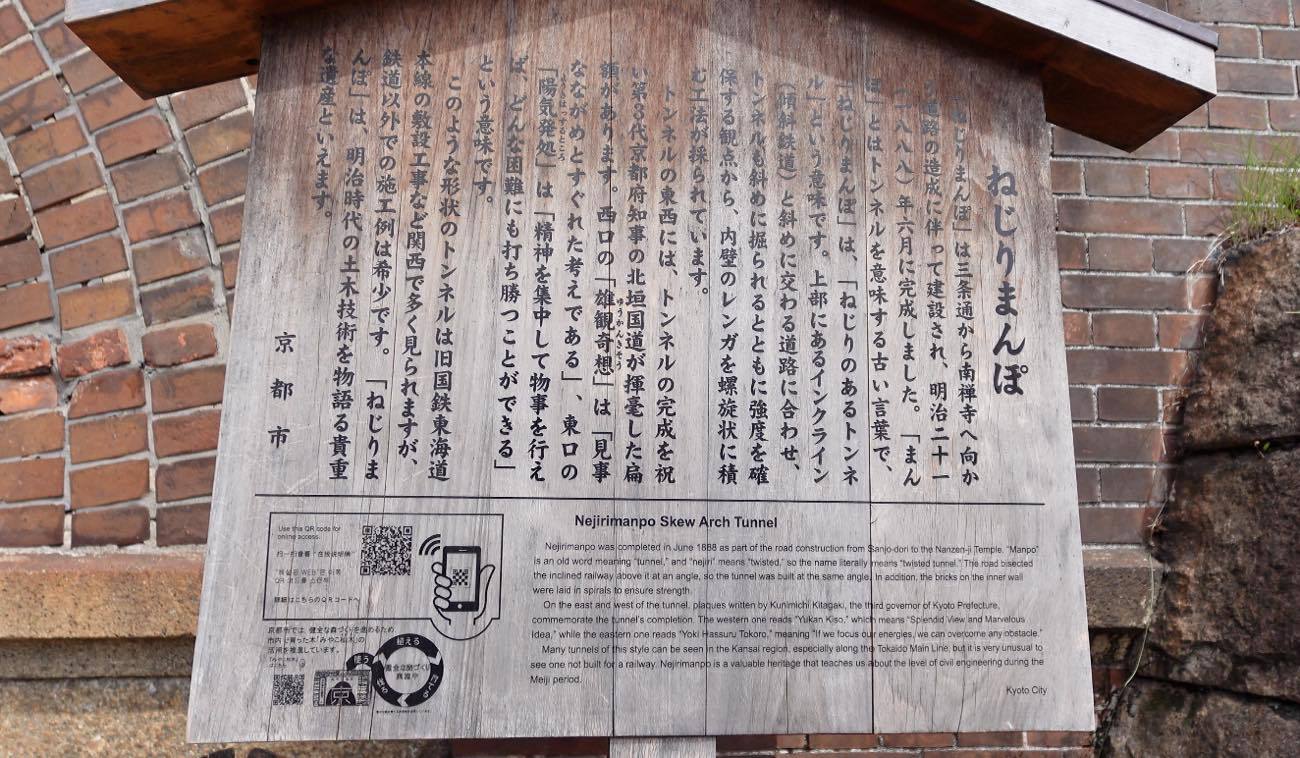 ねじりまんぽ
「ねじりまんぽ」は三条通から南禅寺へ向か
う道路の造成に伴って建設され、明治二十一
（一八八八）年六月に完成しました。「まん
ぽ」とはトンネルを意味する古い言葉で、
「ねじりまんぽ」は、「ねじりのあるトンネ
ル」という意味です。上部にあるインクライン
（傾斜鉄道）と斜めに交わる道路に合わせ、
トンネルも斜めに掘られるとともに強度を確
保する観点から、内壁のレンガを螺旋状に積
む工法が採られています。
トンネルの東西には、トンネルの完成を祝
い第3代京都府知事の北垣国道が揮毫した扁
額があります。西口の「雄観奇想」は「見事
ゆうかんきそう
なながめとすぐれた考えである」、東口の
「陽気発処」は「精神を集中して物事を行え
ようきはっするところ
ば、どんな困難にも打ち勝つことができる」
という意味です。
このような形状のトンネルは旧国鉄東海道
本線の敷設工事など関西で多く見られますが、
鉄道以外での施工例は希少です。「ねじりま
んぽ」は、明治時代の土木技術を物語る貴重
な遺産といえます。
京都市
Nejirimanpo Skew Arch Tunnel
Nejirimanpo was completed in June 1888 as part of the road construction from Sanjo-dori to the Nanzen-ji Temple. "Manpo"
is an old word meaning "tunnel," and "nejiri" means "twisted," so the name literally means "twisted tunnel." The road bisected
the inclined railway above it at an angle, so the tunnel was built at the same angle. In addition, the bricks on the inner wall
were laid in spirals to ensure strength.
On the east and west of the tunnel, plaques written by Kunimichi Kitagaki, the third governor of Kyoto Prefecture,
commemorate the tunnel's completion. The western one reads "Yukan Kiso," which means "Splendid View and Marvelous
Idea," while the eastern one reads "Yoki Hassuru Tokoro," meaning "If we focus our energies, we can overcome any obstacle."
Many tunnels of this style can be seen in the Kansai region, especially along the Tokaido Main Line, but it is very unusual to
see one not built for a railway. Nejirimanpo is a valuable heritage that teaches us about the level of civil engineering during the
Meiji period.
Kyoto City
Use this QR code for
online access.
扫一扫查看"在线说明牌"
QR 코드를 스캔
詳細はこちらのQRコードへ
京都市では、健全な森づくりを進めるため
市内で育った木「みやこ杣木」の
活用を推進しています。
植える
使う
健全な森づくり
京